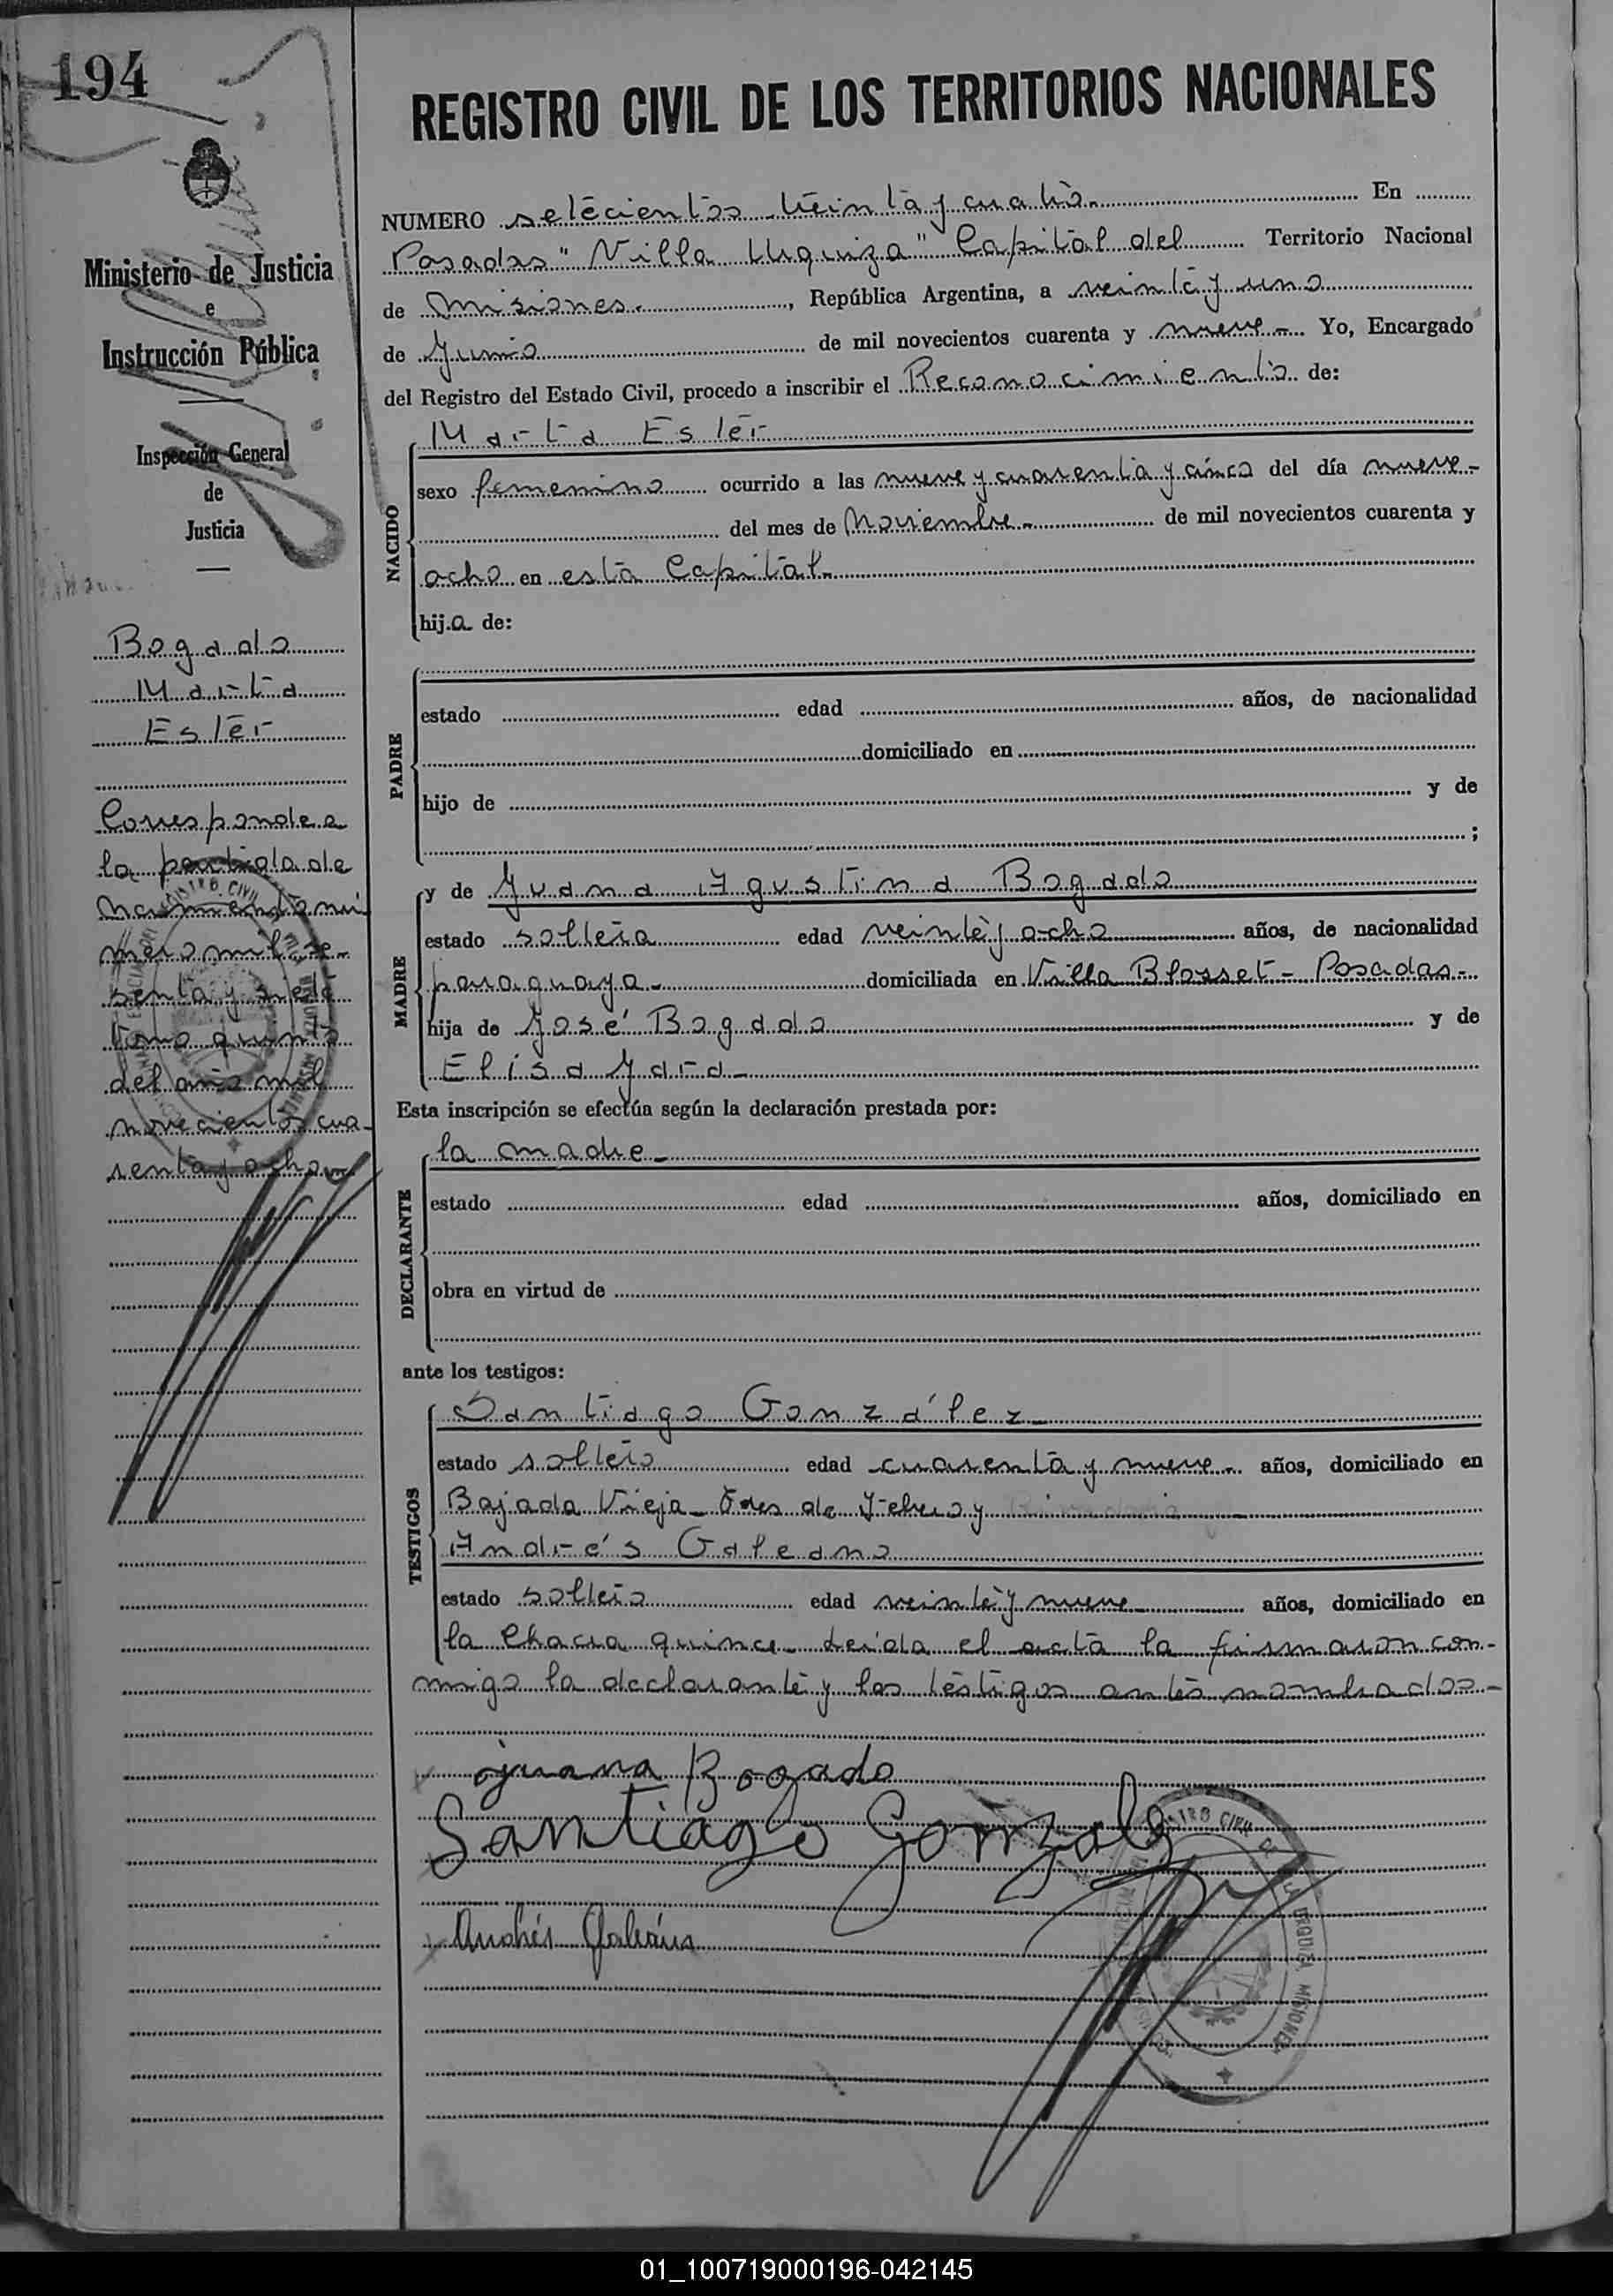 194
Ministerio de Justicia
e
Instrucción Pública
Inspección General
de
Justicia
Bogado
Marta
Ester
Corresponde a
la partida de
Nacimiento nú-
mero mil se-
senta y siete
tomo quinto
del año mil
novecientos cua-
renta y ocho
REGISTRO CIVIL DE LOS TERRITORIOS NACIONALES
NUMERO setecientos treinta y cuatro. En
Posadas "Villa Urquiza" Capital del Territorio Nacional
de Misiones. , República Argentina, a veinte y uno
de Junio de mil novecientos cuarenta y nueve - Yo, Encargado
del Registro del Estado Civil, procedo a inscribir el Reconocimiento de:
NACIDO
Marta Ester
sexo femenino ocurrido a las nueve y cuarenta y cinco del día nueve -
del mes de Noviembre - de mil novecientos cuarenta y
ocho en esta Capital.
hija de:
PADRE
estado edad años, de nacionalidad
domiciliado en
hijo de y de
;
MADRE
y de Juana Agustina Bogado
estado soltera edad veinte y ocho años, de nacionalidad
paraguaya - domiciliada en Villa Blosset - Posadas -
hija de José Bogado y de
Elisa Jara -
Esta inscripción se efectúa según la declaración prestada por:
DECLARANTE
la madre -
estado edad años, domiciliado en
obra en virtud de
ante los testigos:
TESTIGOS
Santiago González -
estado soltero edad cuarenta y nueve - años, domiciliado en
Bajada Vieja - de Febrero y
Andrés Galeano
estado soltero edad veinte y nueve - años, domiciliado en
la Chacra quince - Leída el acta la firmaron con-
migo la declarante y los testigos antes nombrados -
juana Bogado
Santiago Gonzalez
Andrés Galeano
REGISTRO CIVIL DE VILLA URQUIZA MISIONES
01_100719000196-042145